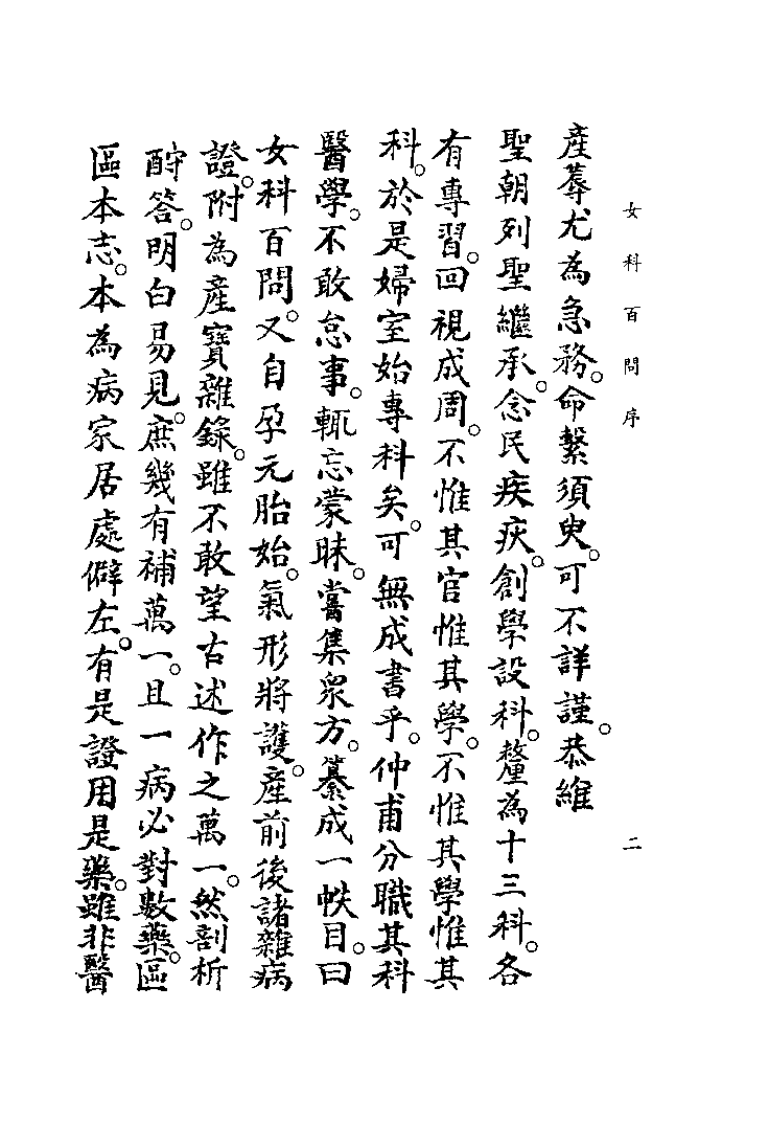 女科百問序　二
產蓐尤為急務。命繫須臾。可不詳謹。恭維
聖朝列聖繼承。念民疾疢。創學設科。釐為十三科。各
有專習。回視成周。不惟其官惟其學。不惟其學惟其
科。於是婦室始專科矣。可無成書乎。仲甫分職其科
醫學。不敢怠事。輒忘蒙昧。嘗集眾方。纂成一帙。目曰
女科百問。又自孕元胎始。氣形將護。產前後諸雜病
證。附為產寶雜錄。雖不敢望古述作之萬一。然剖析
酧答。明白易見。庶幾有補萬一。且一病必對數藥。區
區本志。本為病家居處僻左。有是證用是藥。雖非醫